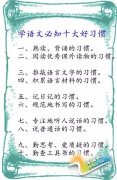 学语文必知十大好习惯
一、熟读、背诵的习惯。
二、阅读优秀课外读物的习惯。
三、推敲语言文字的习惯。
四、积累语言材料的习惯。
五、写日记的习惯。
六、规范地书写的习惯。
七、专注地听人说话的习惯。
八、说普通话的习惯。
九、勤思考、爱质疑的习惯。
十、勤查工具书的习惯。